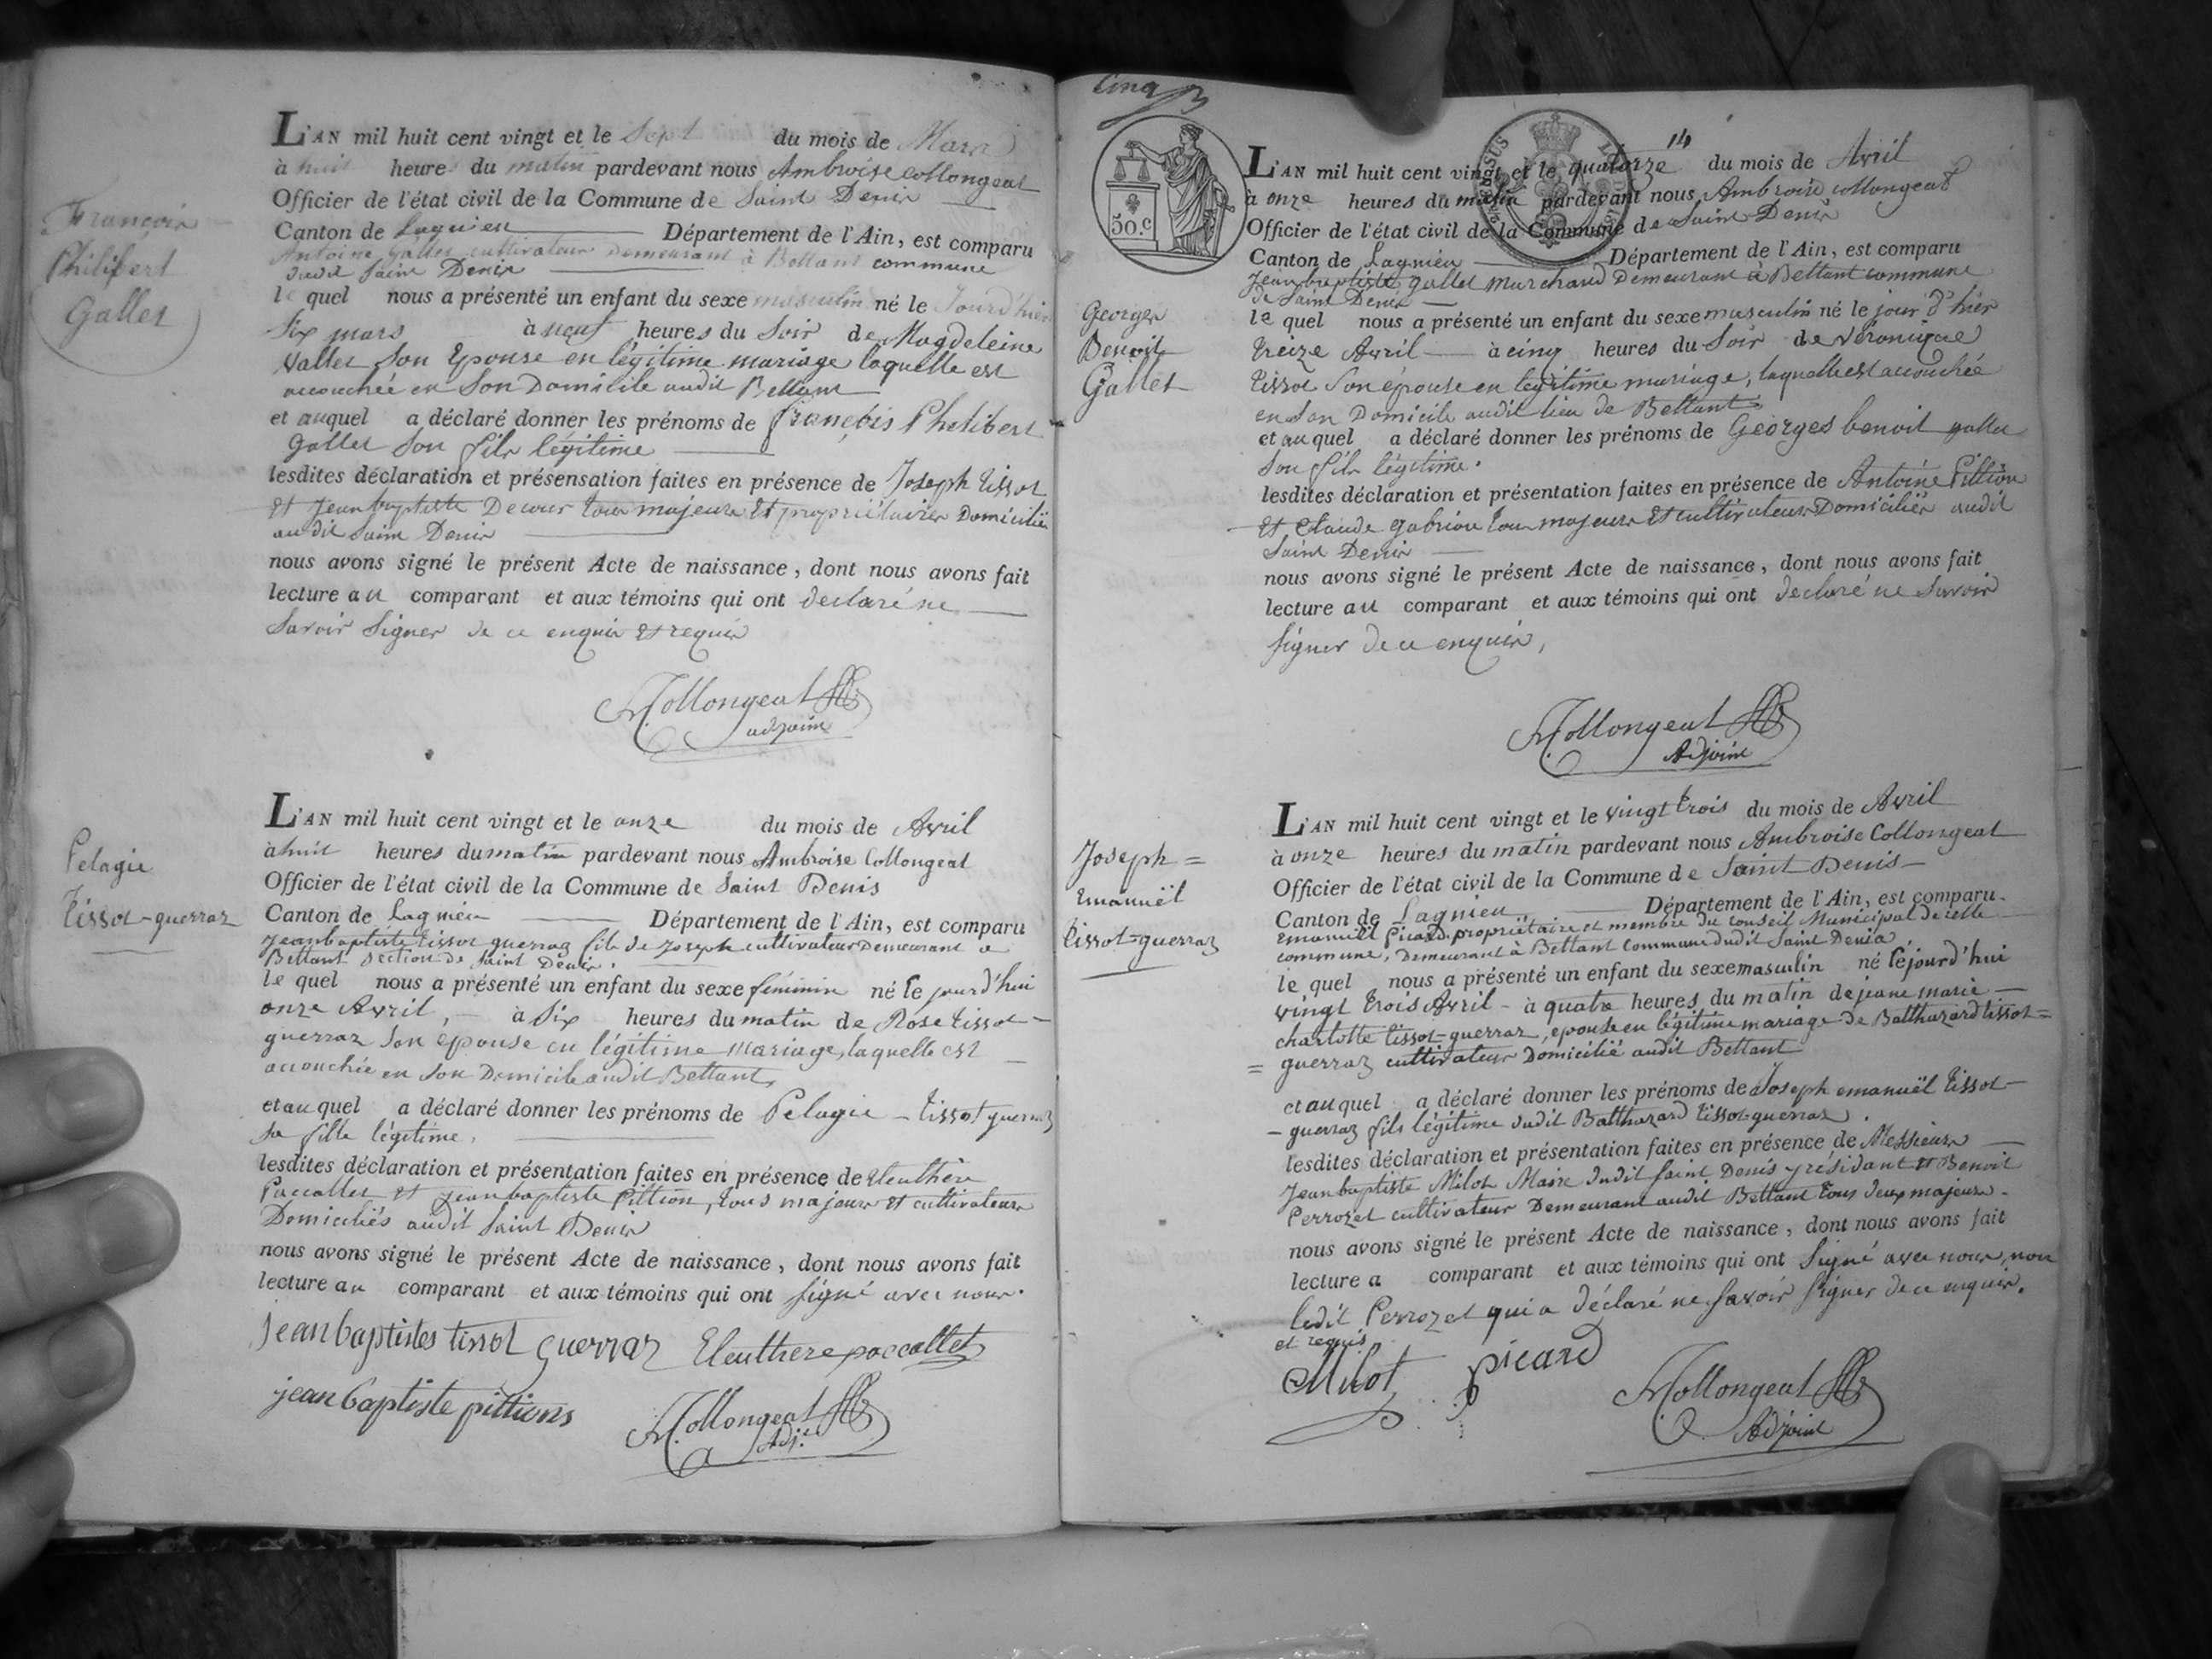 François
Philibert
Gallet
L'AN mil huit cent vingt et le Sept du mois de Mars
à huit heures du matin pardevant nous Ambroise Collongeat
Officier de l'état civil de la Commune de Saint Denis
Canton de Lagnieu Département de l'Ain, est comparu
Antoine Gallet cultivateur demeurant à Bettant commune
dudit Saint Denis
le quel nous a présenté un enfant du sexe masculin né le Jourd'hier
Six mars à neuf heures du Soir de Magdeleine
Vallet Son Epouse en légitime mariage laquelle est
accouchée en Son Domicile audit Bettant
et auquel a déclaré donner les prénoms de françois Philibert
gallet Son fils légitime
lesdites déclaration et présensation faites en présence de Joseph tissot
Et Jean baptiste Decour tous majeurs Et propriétaires Domiciliés
audit Saint Denis
nous avons signé le présent Acte de naissance, dont nous avons fait
lecture au comparant et aux témoins qui ont declaré ne
Savoir Signer de ce enquis Et requis
Collongeat
adjoint
Pelagie
tissot-guerraz
L'AN mil huit cent vingt et le onze du mois de Avril
à huit heures du matin pardevant nous Ambroise Collongeat
Officier de l'état civil de la Commune de Saint Denis
Canton de Lagnieu Département de l'Ain, est comparu
Jean baptiste tissot guerraz fils de Joseph cultivateur Demeurant a
Bettant section de Saint Denis.
le quel nous a présenté un enfant du sexe féminin né le jourd'hui
onze Avril, à Six heures du matin de Rose tissot-
guerraz Son épouse en légitime mariage, laquelle est
accouchée en Son Domicile audit Bettant,
et au quel a déclaré donner les prénoms de Pelagie - tissot guerraz
Sa fille légitime,
lesdites déclaration et présentation faites en présence de Eleuthère
Paccallet Et Jean baptiste Pittion, tous majeurs Et cultivateurs
Domiciliés audit Saint Denis
nous avons signé le présent Acte de naissance, dont nous avons fait
lecture au comparant et aux témoins qui ont signé avec nous.
jean baptistes tissot guerraz Eleuthere paccallet
jean baptiste pittions Collongeat
Adj.
Cinq
50.c
Georges
Benoit
Gallet
14
L'AN mil huit cent vingt et le quatorze du mois de Avril
à onze heures du matin pardevant nous Ambroise Collongeat
Officier de l'état civil de la Commune de Saint Denis
Canton de Lagnieu Département de l'Ain, est comparu
Jean baptiste gallet marchand Demeurant à Bettant commune
de Saint Denis
le quel nous a présenté un enfant du sexe masculin né le jour d'hier
treize Avril à cinq heures du Soir de Véronique
tissot Son épouse en légitime mariage, laquelle est accouchée
en Son Domicile audit lieu de Bettant
et au quel a déclaré donner les prénoms de Georges benoit gallet
Son fils légitime.
lesdites déclaration et présentation faites en présence de Antoine Pittion
Et Claude gabrion tous majeurs Et cultivateurs Domiciliés audit
Saint Denis
nous avons signé le présent Acte de naissance, dont nous avons fait
lecture au comparant et aux témoins qui ont declaré ne Savoir
signer de ce enquis,
Collongeat
Adjoint
Joseph =
Emanuël
tissot=guerraz
L'AN mil huit cent vingt et le vingt trois du mois de Avril
à onze heures du matin pardevant nous Ambroise Collongeat
Officier de l'état civil de la Commune de Saint Denis
Canton de Lagnieu Département de l'Ain, est comparu
Emanuël Picard, propriétaire et membre du conseil Municipal de cette
commune, Demeurant à Bettant commune dudit Saint Denis
le quel nous a présenté un enfant du sexe masculin né le jourd'hui
vingt trois Avril - à quatre heures du matin de jeane marie
charlotte tissot-guerraz, epouse en légitime mariage de Balthazard tissot=
= guerraz cultivateur Domicilié audit Bettant
et au quel a déclaré donner les prénoms de Joseph emanuël tissot-
- guerraz fils légitime dudit Balthazard tissot-guerraz.
lesdites déclaration et présentation faites en présence de Messieurs
Jean baptiste Milot Maire dudit Saint Denis y résidant et Benoit
Perrozet cultivateur Demeurant audit Bettant tous deux majeurs.
nous avons signé le présent Acte de naissance, dont nous avons fait
lecture a comparant et aux témoins qui ont Signé avec nous, non
ledit Perrozet qui a déclaré ne savoir signer de ce enquis.
et requis
Milot picard Collongeat
Adjoint